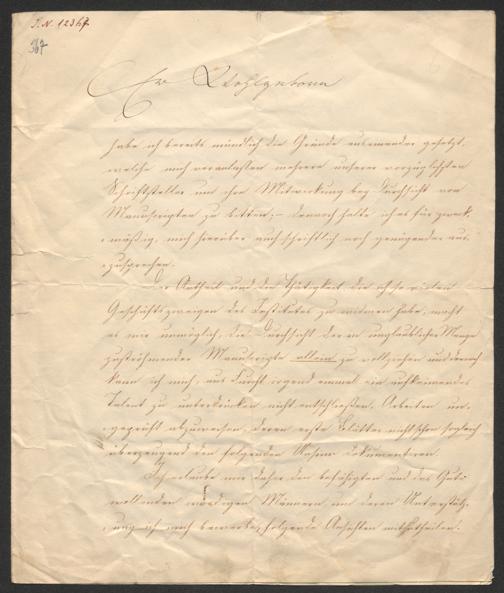 J.N. 12367
367
Ew Wohlgeboren
habe ich bereits mündlich die Gründe auseinander gesetzt,
welche mich veranlaßten mehrere unserer vorzüglichsten
Schriftsteller um ihre Mitwirkung bey Durchsicht von
Manuscripten zu bitten; dennoch halte ich es für zweck-
mäßig, mich hierüber auch schriftlich noch genügender aus-
zusprechen.
Der Antheil und die Thätigkeit die ich so vielen
Geschäftszweigen des Institutes zu widmen habe, macht
es mir unmöglich, die Durchsicht der in unglaublicher Menge
zuströhmenden Manuscripte allein zu vollziehen und dennoch
kann ich mich, aus Furcht irgend einmal ein aufkeimendes
Talent zu unterdrücken nicht entschließen, Arbeiten un-
geprüft abzuweisen, deren erste Blätter nicht schon sogleich
überzeugend den folgenden Unsinn dokumentiren.
Ich erlaube mir daher den befähigten und das Gute
wollenden würdigen Männern, um deren Unterstütz-
ung ich mich bewerbe, folgende Ansichten mitzutheilen.